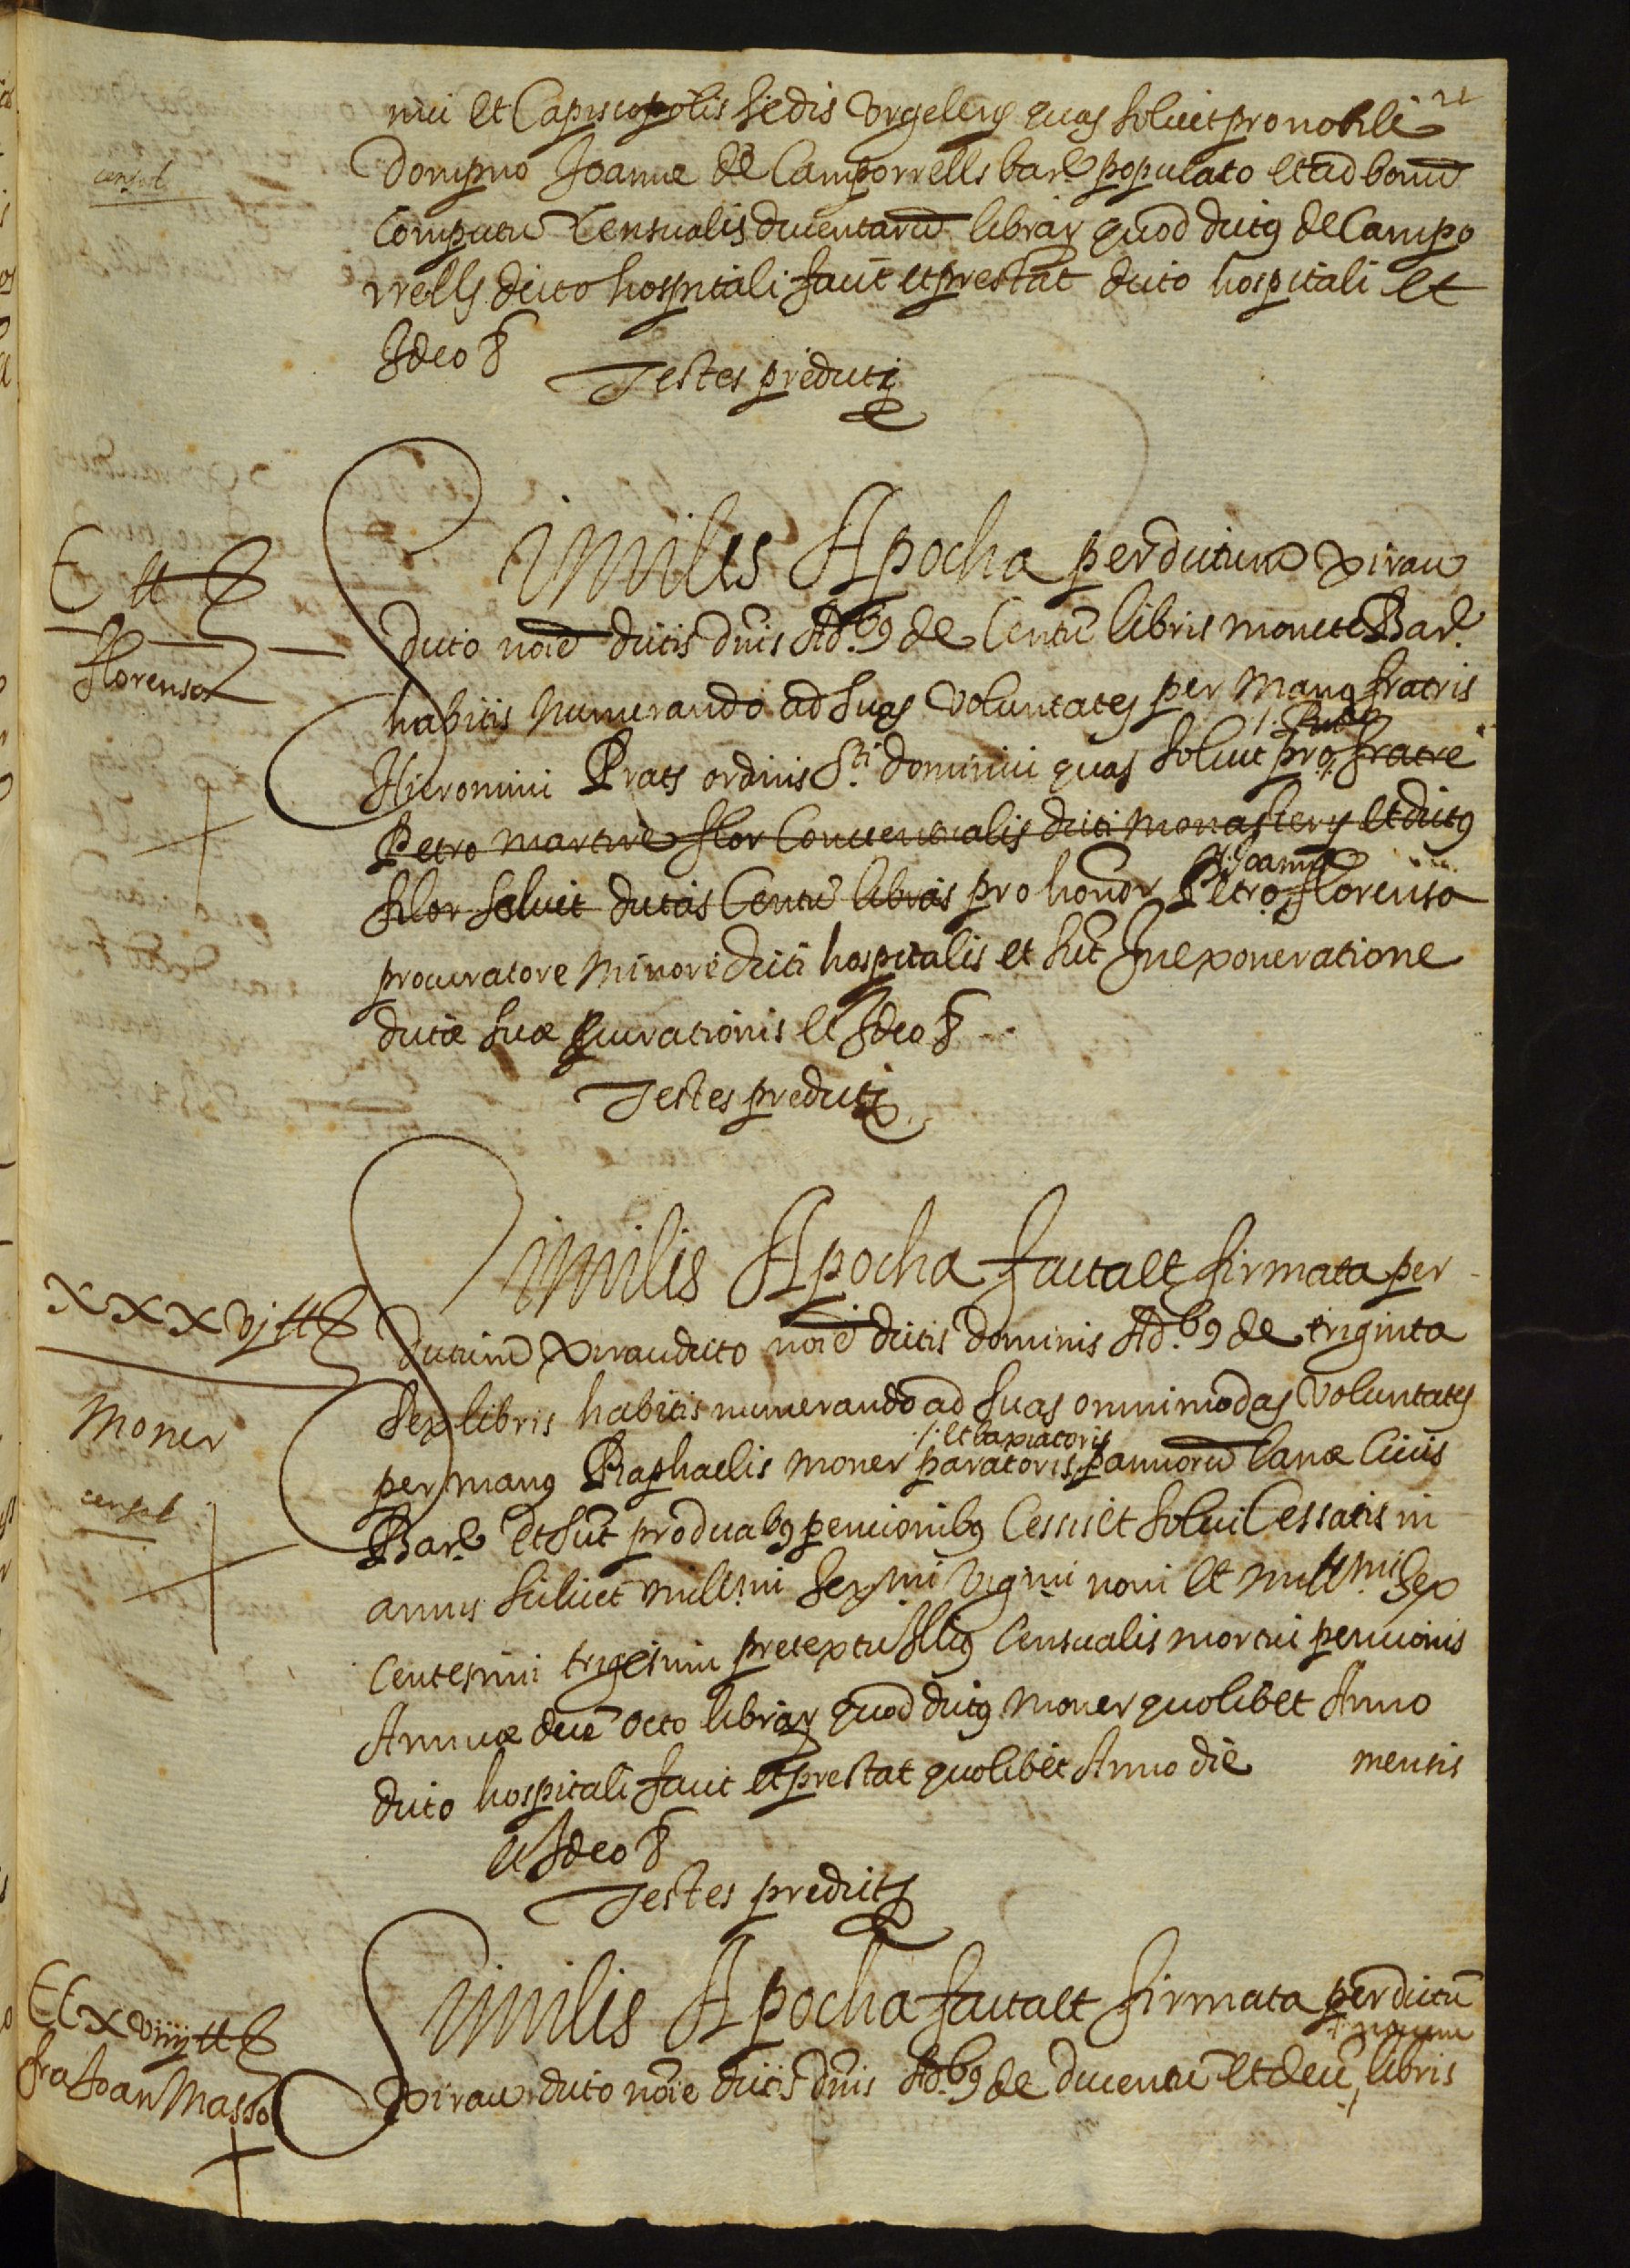 nici et Capiscopolis sedis Urgellen̄ quas solvit pro nobili
censal
Dompno Joanne de Camporrells barñ populato et ad bonū
computū Censualis ducentarū librar̄ quod dictꝰ de Campo
rrells dicto hospitali facit et prestat dicto hospitali et
Ideo &
Testes predicti
Similis Apocha per dictum Xirau
C ₶ s
dicto nōie dictis dn̄is Ad.bꝰ de Centū libris monete Barñ
Florensa
habitis numerando ad suas voluntates per manꝰ fratris
Hieronimi Prats ordinis S.ti dominici quas solvit pro fratre
Petro martire flor Conventualis dicti monastery et dictꝰ
flor solvit dictas Centū libras pro honor̄ Petro Florensa
/. Joanne
procuratore minore dicti hospitalis et sūt In exoneratione
dictæ suæ ꝓcurationis et Ideo &
Testes predicti
Similis Apocha facta et firmata per
XXXvj ₶ s
dictum Xirau dicto nōie dictis dominis Ad.bꝰ de triginta
sex libris habitis numerando ad suas omnimodas voluntates
Moner
/. et baxiatoris
per manꝰ Raphaelis Moner paratoris pannorū lanæ Civis
censal
Barñ et sūt pro duabꝰ pencionibꝰ Cessis et solvi Cessatis in
annis scilicet mill.mi sex.mi vig.mi noni et mill.mi sex
centesimi trigesimi pretextu Illiꝰ Censualis mortui pencionis
Annuæ decē octo librar̄ quod dictꝰ Moner quolibet Anno
dicto hospitali facit et prestat quolibet Anno die mensis
et Ideo &
Testes predicti
Similis Apocha facta et firmata per dictū
CCxviiij ₶ s
/. novem
Xirau dicto nōie dictis dn̄is Ad.bꝰ de ducentū et decē libris
fra Joan Masso